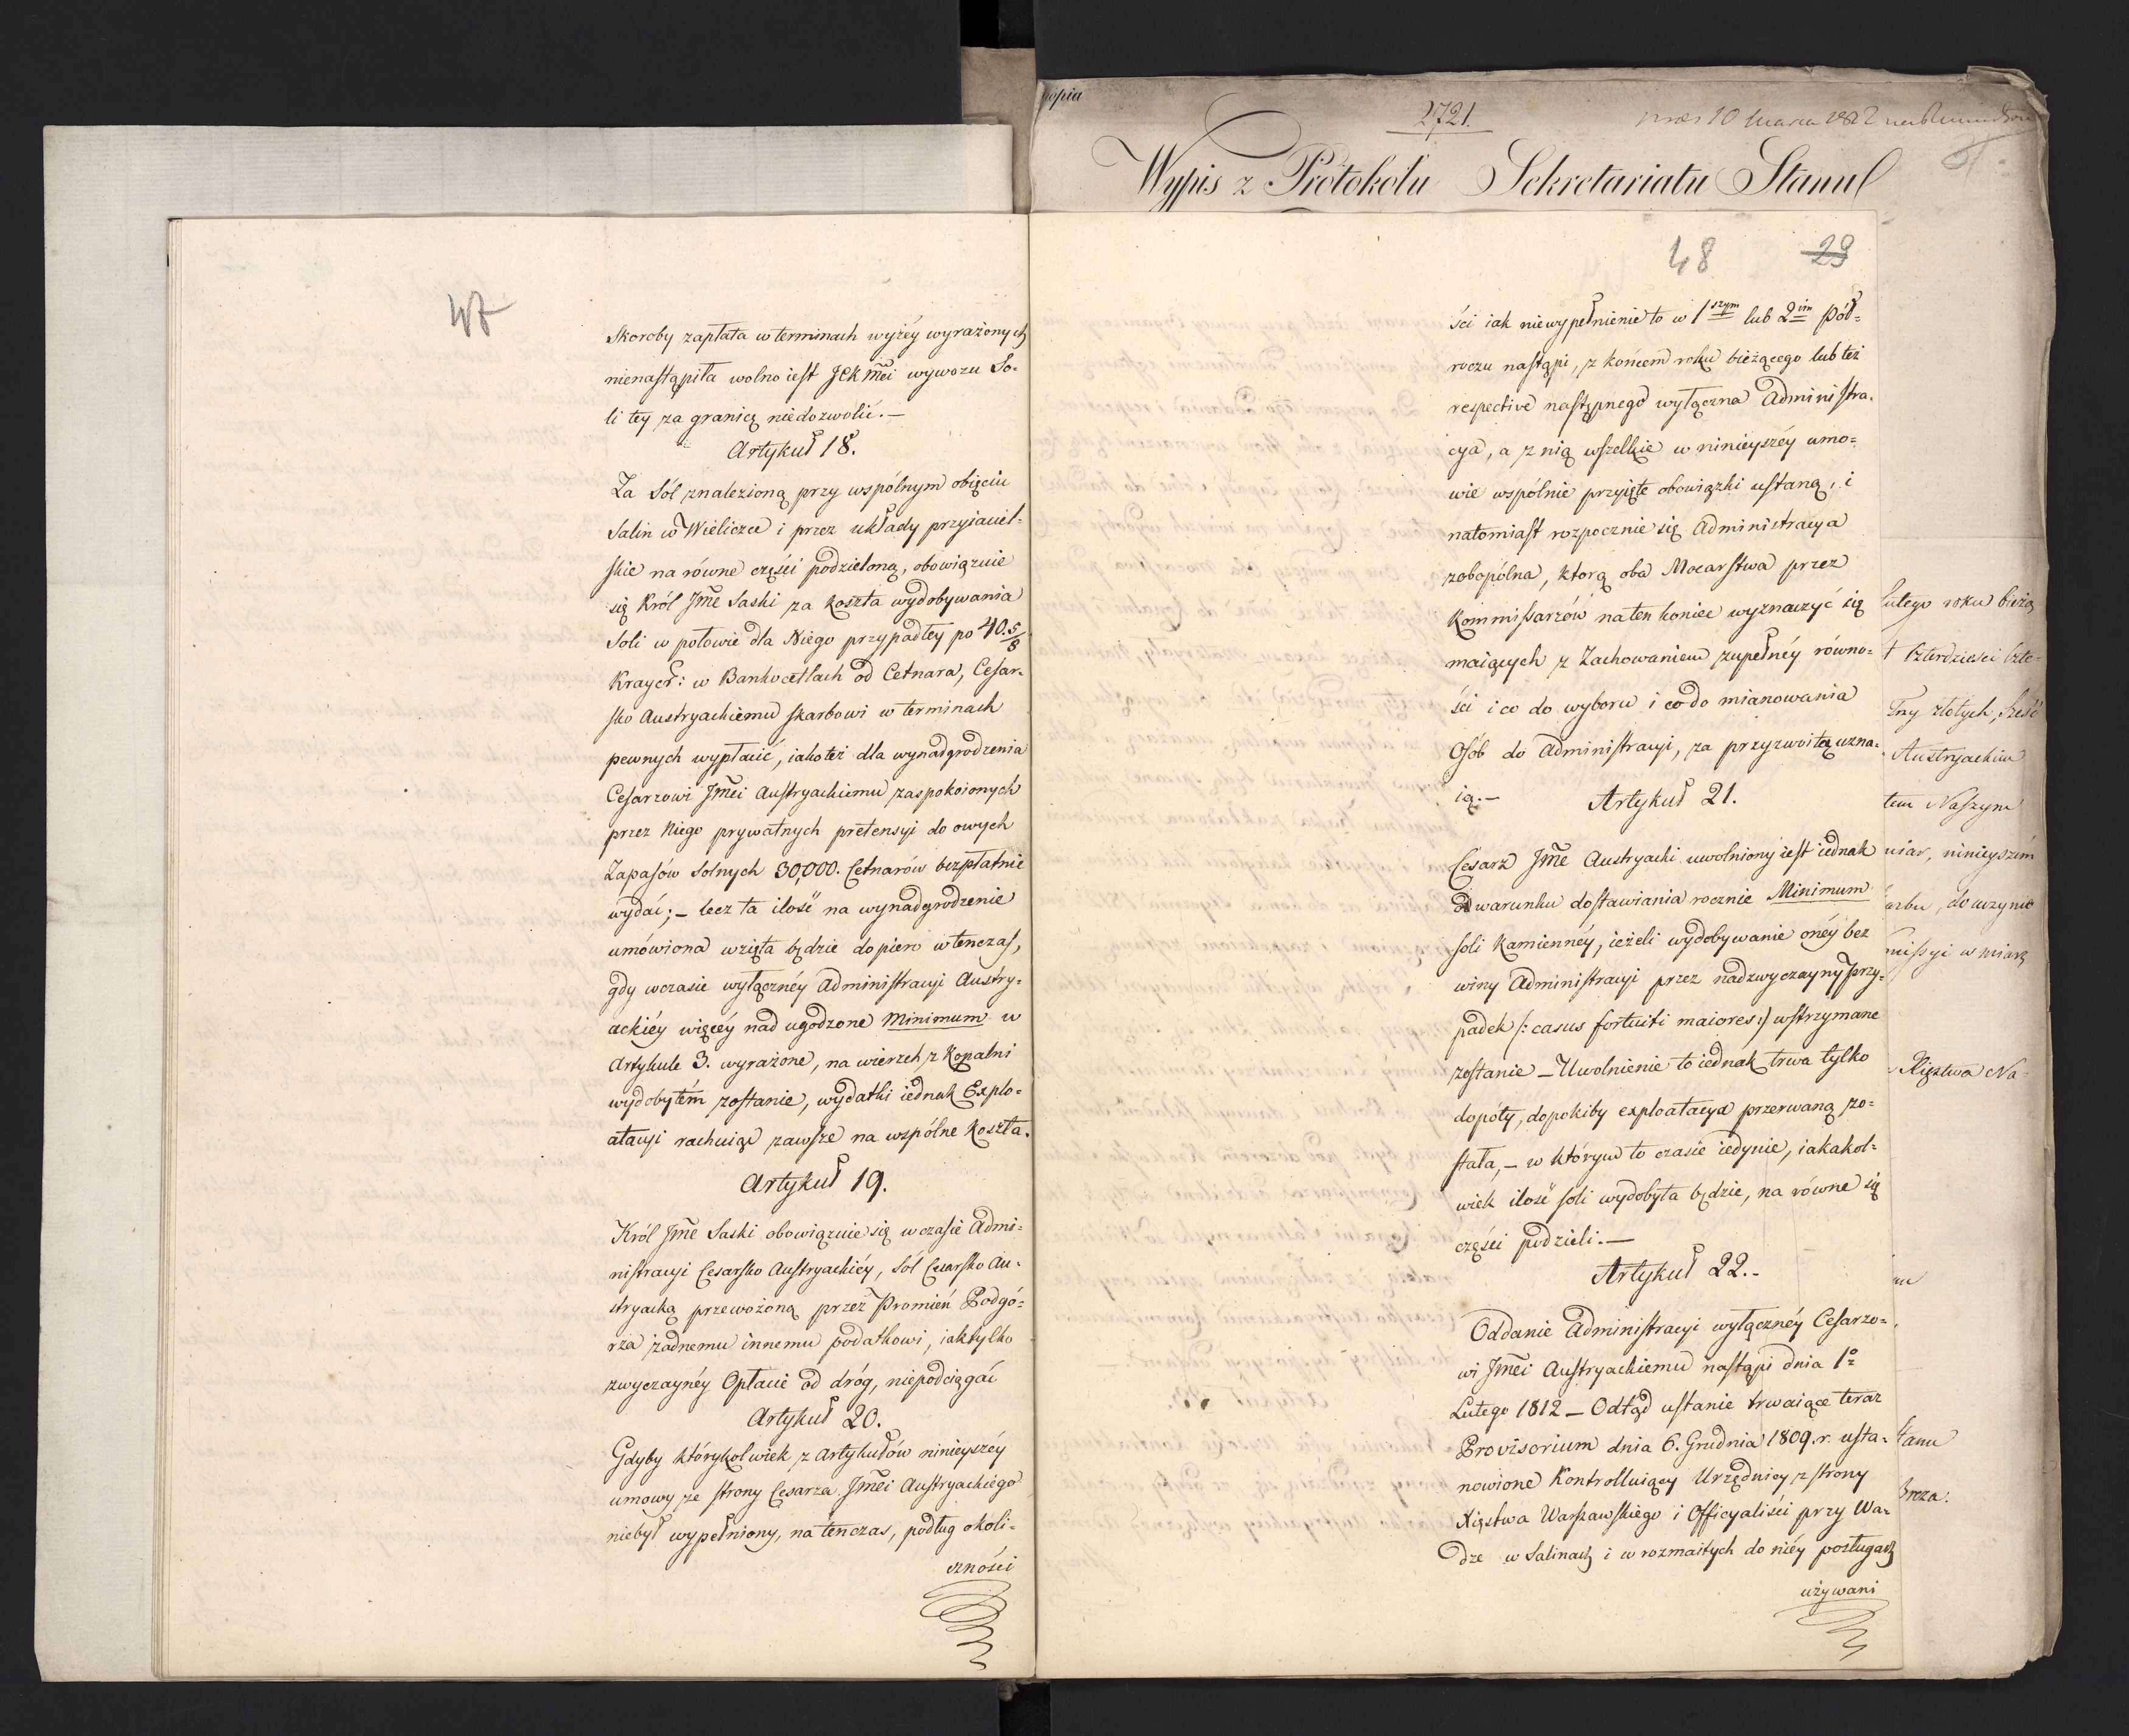 47
Skoroby zapłata w terminach wyżéy wyrażonych
nienastąpiła wolno iest JCKMci wywozu So-
li tey za granicę niedozwolić. —
Artykuł 18.
Za Sól znalezioną przy wspólnym obięciu
Salin w Wieliczce i przez układy przyiaciel-
skie na równe części podzieloną, obowiązuie
się Król Jmć Saski za koszta wydobywania
Soli w połowie dla Niego przypadłey po 40.5/8
Krayc̃r: w Bankocetlach od Cetnara, Cesar-
sko Austryackiemu skarbowi w terminach
pewnych wypłacić, iakoteż dla wynadgrodzenia
Cesarzowi Jmci Austryackiemu zaspokoionych
przez Niego prywatnych pretensyi do owych
Zapasów Solnych 30,000. Cetnarów bezpłatnie
wydać; — lecz ta ilość na wynadgrodzenie
umówiona wzięta będzie dopiero wtenczas,
gdy wczasie wyłącznéy Administracyi Austry-
ackiéy więcéy nad ugodzone Minimum w
Artykule 3. wyrażone, na wierzch z Kopalni
wydobytém zostanie, wydatki iednak Explo-
atacyi rachuiąc zawsze na wspólne koszta.
Artykuł 19.
Król Jmć Saski obowiązuie się w czasie Admi-
nistracyi Cesarsko Austryackiéy, Sól Cesarsko Au-
stryacką przewożoną przez Promień Podgó-
rza żadnemu innemu podatkowi, iak tylko
zwyczaynéy Opłacie od dróg, niepodciągać
Artykuł 20.
Gdyby którykolwiek z Artykułów ninieyszéy
umowy ze strony Cesarza Jmci Austryackiego
niebył wypełniony, na tenczas, podług okoli-
czności
opia
2721.
Wypis z Protokołu Sekretariatu Stanu
48 29
ści iak niewypełnienie to w 1szym lub 2im Pół-
roczu nastąpi, z końcem roku bieżącego lub też
respective następnego wyłączna Administra-
cya, a z nią wszelkie w ninieyszéy umo-
wie wspólnie przyięte obowiązki ustaną, i
natomiast rozpocznie się Administracya
zobopólna, którą oba Mocarstwa przez
Kommissarzów na ten koniec wyznaczyć się
maiących z Zachowaniem zupełnéy równo-
ści i co do wyboru i co do mianowania
Osób do Administracyi, za przyzwoitą uzna-
ią. —
Artykuł 21.
Cesarz Jmć Austryacki uwolniony iest iednak
od warunku dostawiania rocznie Minimum
soli Kamiennéy, ieżeli wydobywanie onéy bez
winy Administracyi przez nadzwyczayny przy-
padek /: casus fortuiti maiores :/ wstrzymane
zostanie — Uwolnienie to iednak trwa tylko
dopóty, dopokiby exploatacya przerwaną zo-
stała, — w którym to czasie iedynie, iakakol-
wiek ilość soli wydobyta będzie, na równe się
części podzieli. —
Artykuł 22. -
Oddanie Administracyi wyłącznéy Cesarzo-
wi Jmci Austryackiemu nastąpi dnia 1o
Lutego 1812 — Odtąd ustanie trwaiące teraz
Provisorium dnia 6. Grudnia 1809. r. usta-
nowione Kontrolluiący Urzędnicy z strony
Xięstwa Warszawskiego i Officyaliści przy Wa-
dze w Salinach i w rozmaitych do niéy posługach
używani
lutego roku bieżą
t Czterdzieści Czte-
złotych, Sześć
Austryackim
tem Naszym
miar, ninieyszém
arbu, do uczynie
missyi w miarę
Xięztwa Na-
tanu